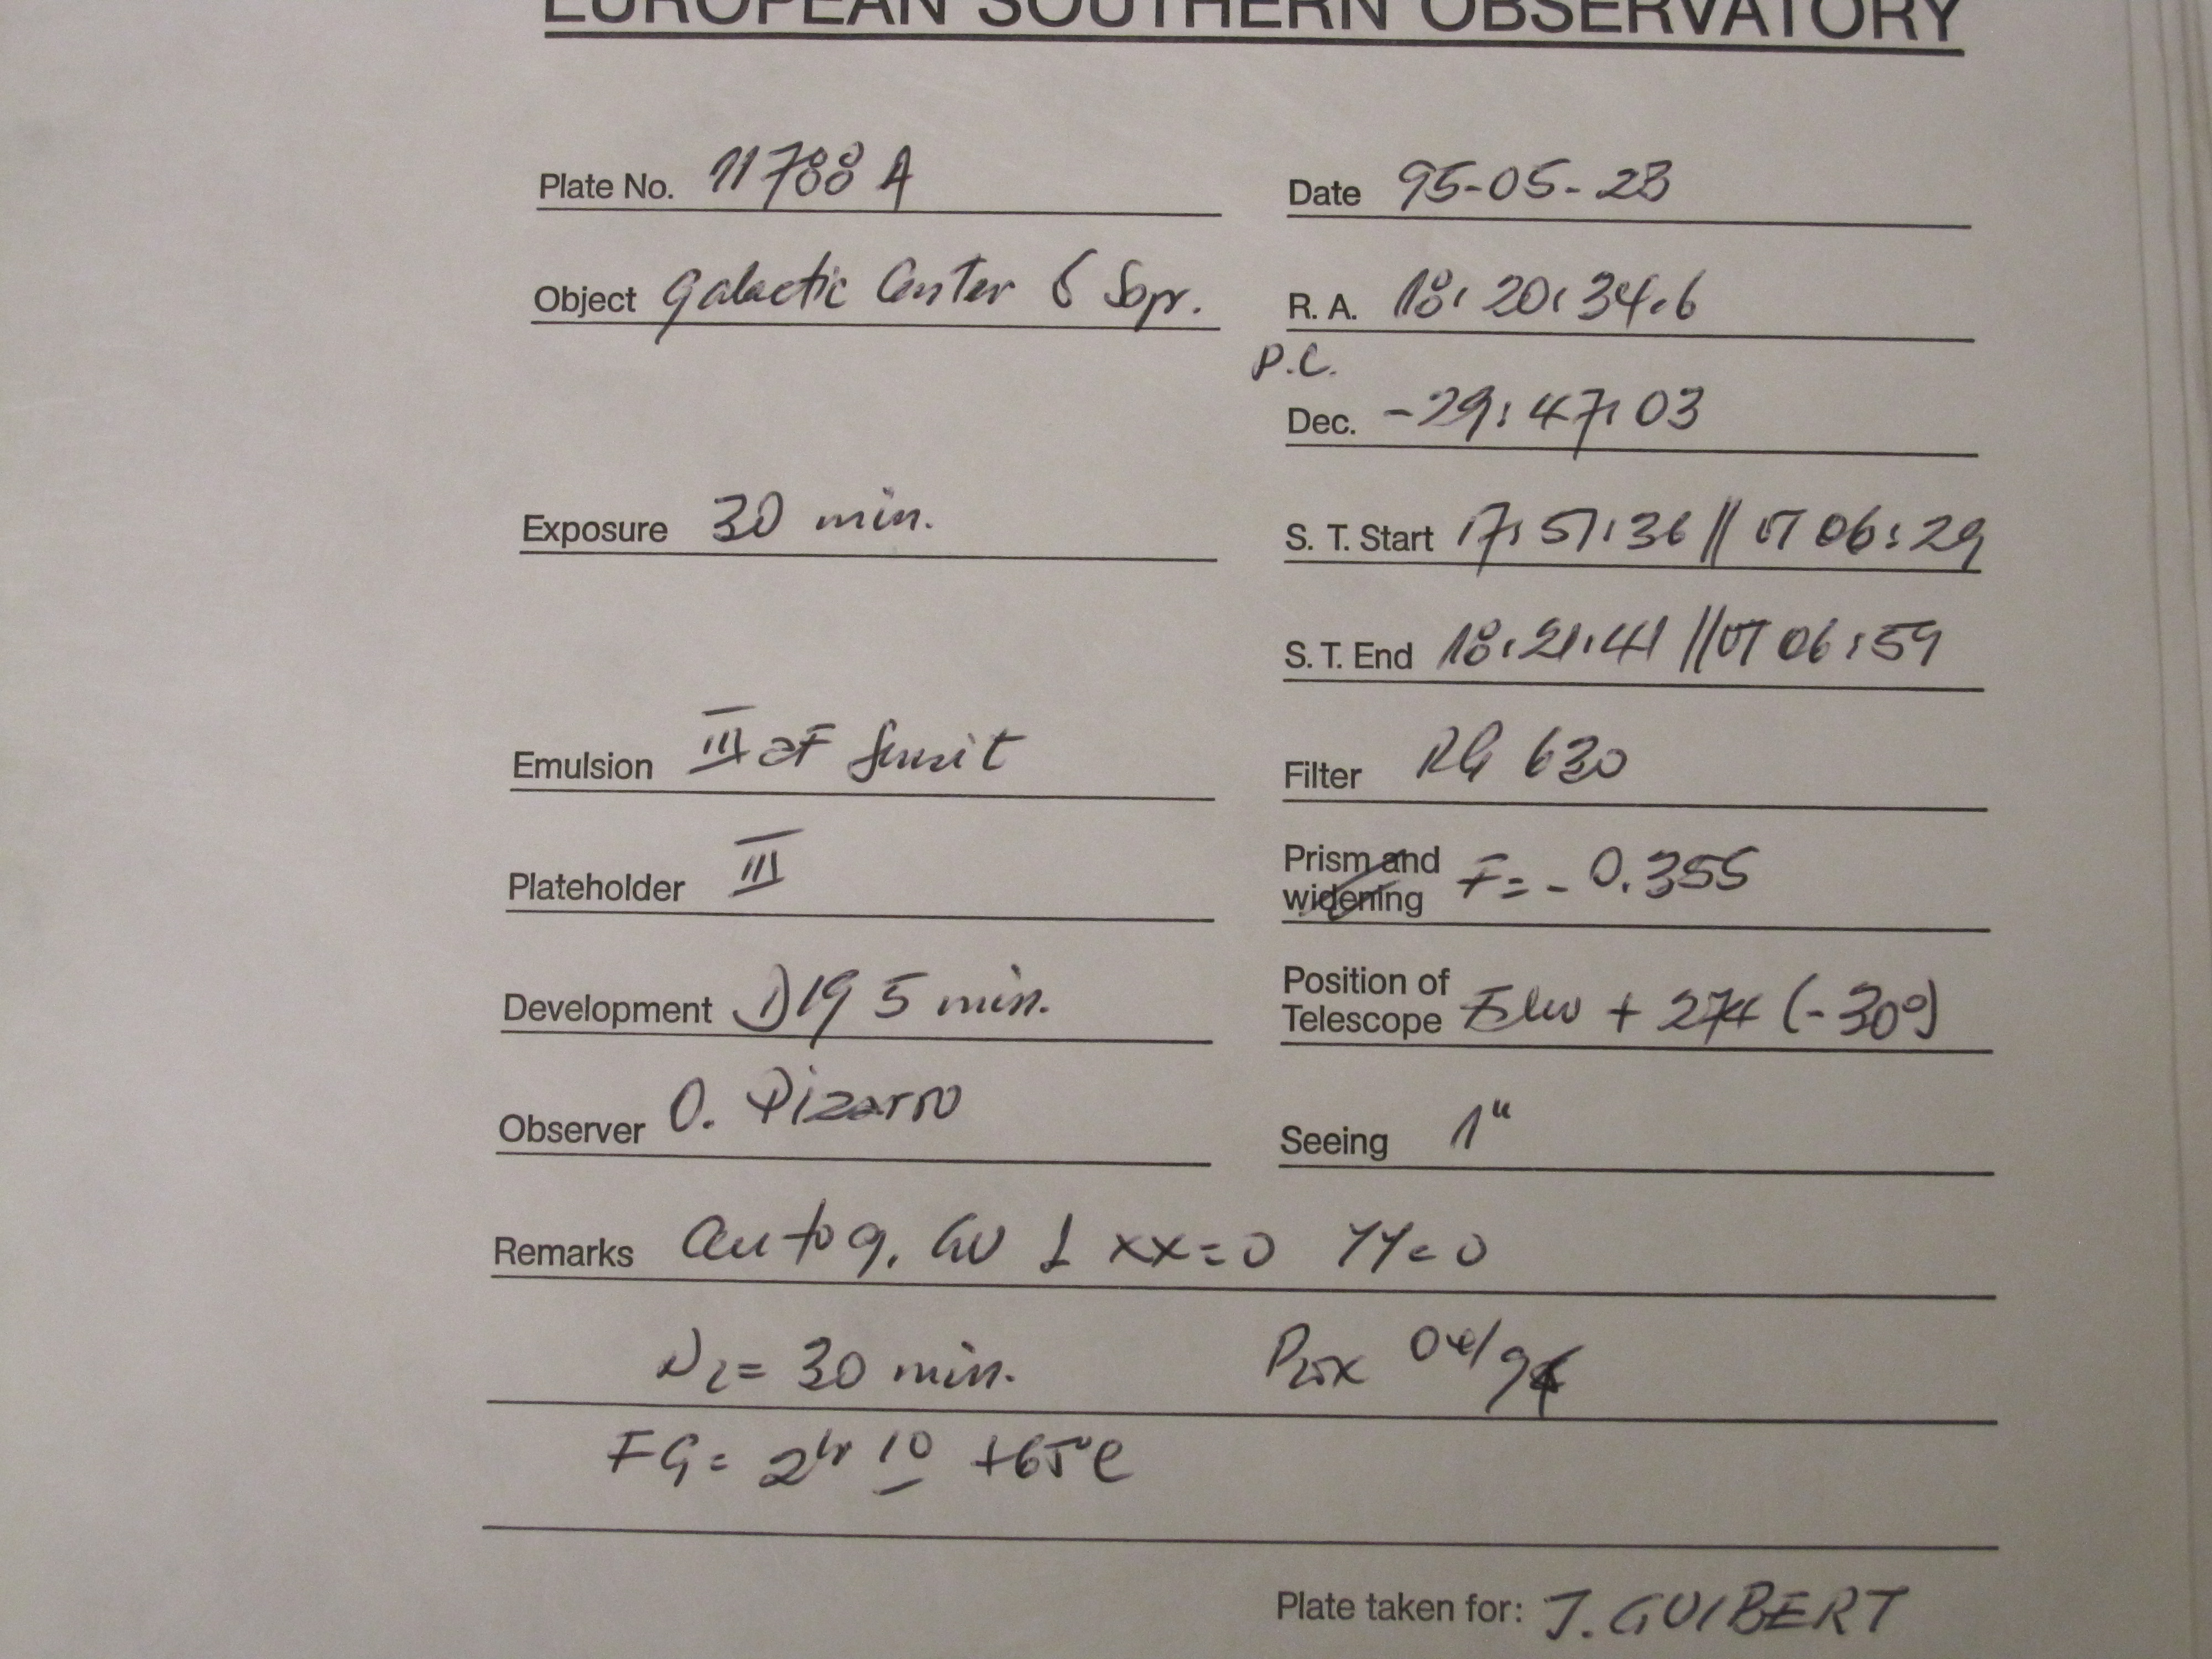 EUROPEAN SOUTHERN OBSERVATORY
Plate No. 11788 A
Date 95-05-23
Object Galactic Center
R. A. 18:20:34.6
P.C.
Dec. -29:47:03
Exposure 30 min.
S. T. Start 17:51:36 // UT 06:29
S. T. End 18:21:41 // UT 06:59
Emulsion III aF
Filter RG 630
Plateholder III
Prism and widening F= - 0.355
Development D19 5 min.
Position of Telescope + 274 (-30°)
Observer O. Pizarro
Seeing 1"
Remarks autog. xx=0 YY=0
N2= 30 min.
FG= 2hr 10 +65°C
Plate taken for: J. GUIBERT